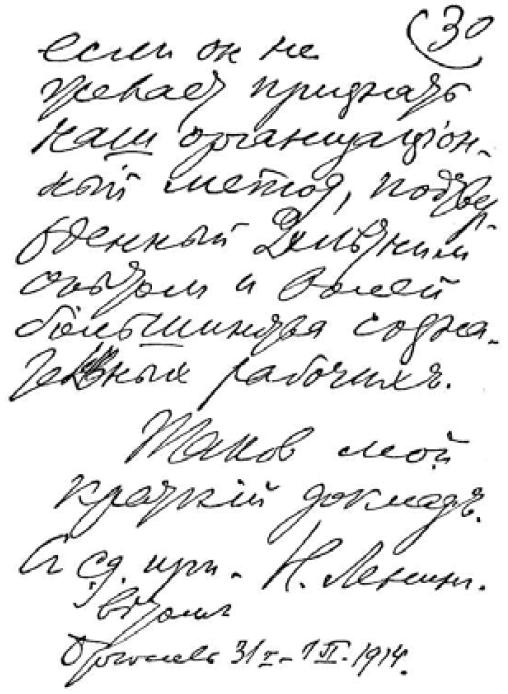 30
если он не
желает признать
наш организаціон-
ный метод, подтвер-
жденный лѣтним
опытом и волей
большинства созна-
тельных рабочихъ.
Таков мой
краткій докладъ.
С с.д. при- Н. Ленин.
вѣтом
Брюссель 31 I - 1 II. 1914.